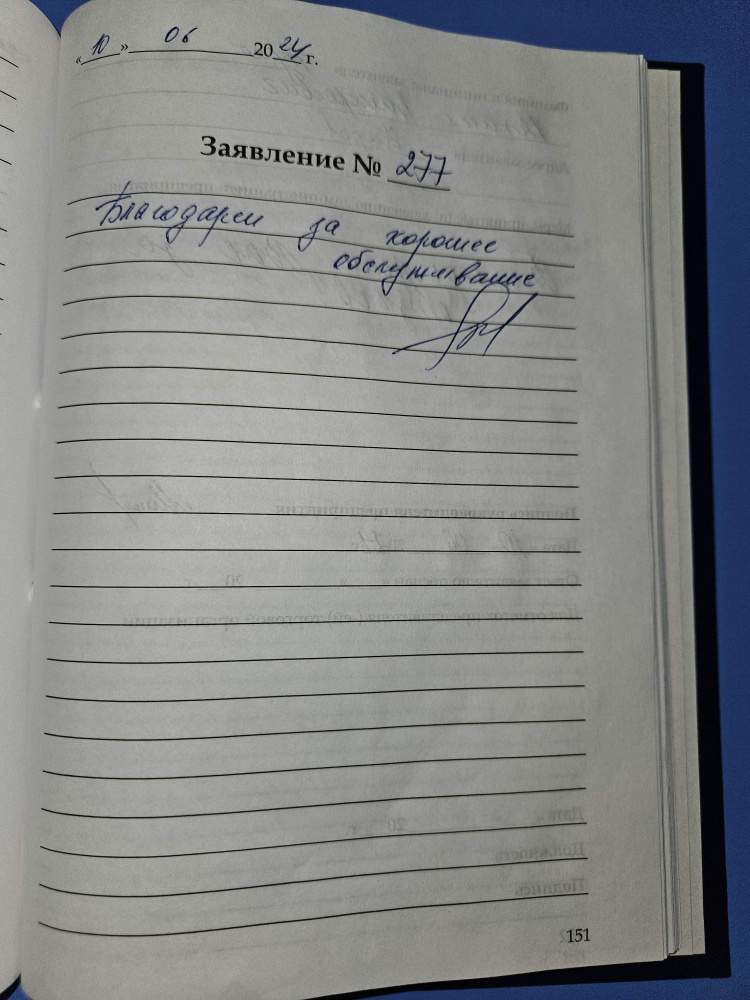 «10» 06 2024 г.
Заявление № 277
Благодарси за хорошее
обслуживание
151